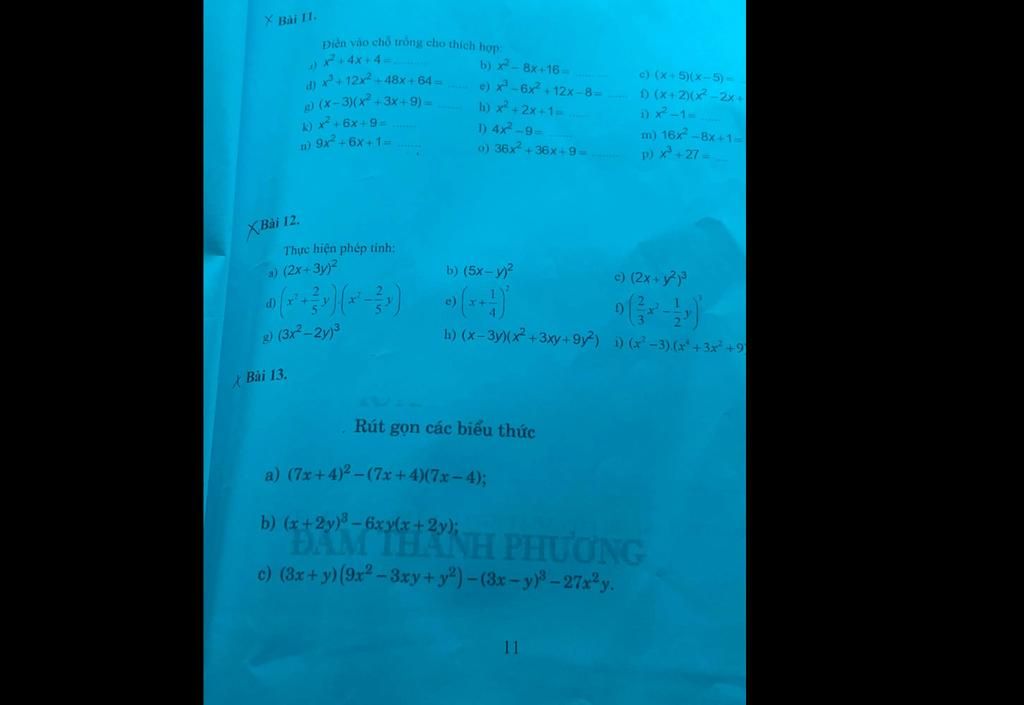 Bài 11.
Điền vào chỗ trống cho thích hợp:
a) x² + 4x + 4 = ......... b) x² − 8x + 16 = ......... c) (x + 5)(x − 5) = ...
d) x³ + 12x² + 48x + 64 = ...... e) x³ − 6x² + 12x − 8 = ...... f) (x + 2)(x² − 2x +
g) (x − 3)(x² + 3x + 9) = ...... h) x² + 2x + 1 = ...... i) x² − 1 = ......
k) x² + 6x + 9 = ...... l) 4x² − 9 = ...... m) 16x² − 8x + 1 =
n) 9x² + 6x + 1 = ...... o) 36x² + 36x + 9 = ........ p) x³ + 27 = ....
Bài 12.
Thực hiện phép tính:
a) (2x + 3y)² b) (5x − y)² c) (2x + y²)³
d) (x² + 2/5 y).(x² − 2/5 y) e) (x + 1/4)² f) (2/3 x² − 1/2 y)³
g) (3x² − 2y)³ h) (x − 3y)(x² + 3xy + 9y²) i) (x² − 3).(x⁴ + 3x² + 9
Bài 13.
Rút gọn các biểu thức
a) (7x + 4)² − (7x + 4)(7x − 4);
b) (x + 2y)³ − 6xy(x + 2y);
ĐÀM THANH PHƯƠNG
c) (3x + y)(9x² − 3xy + y²) − (3x − y)³ − 27x²y.
11